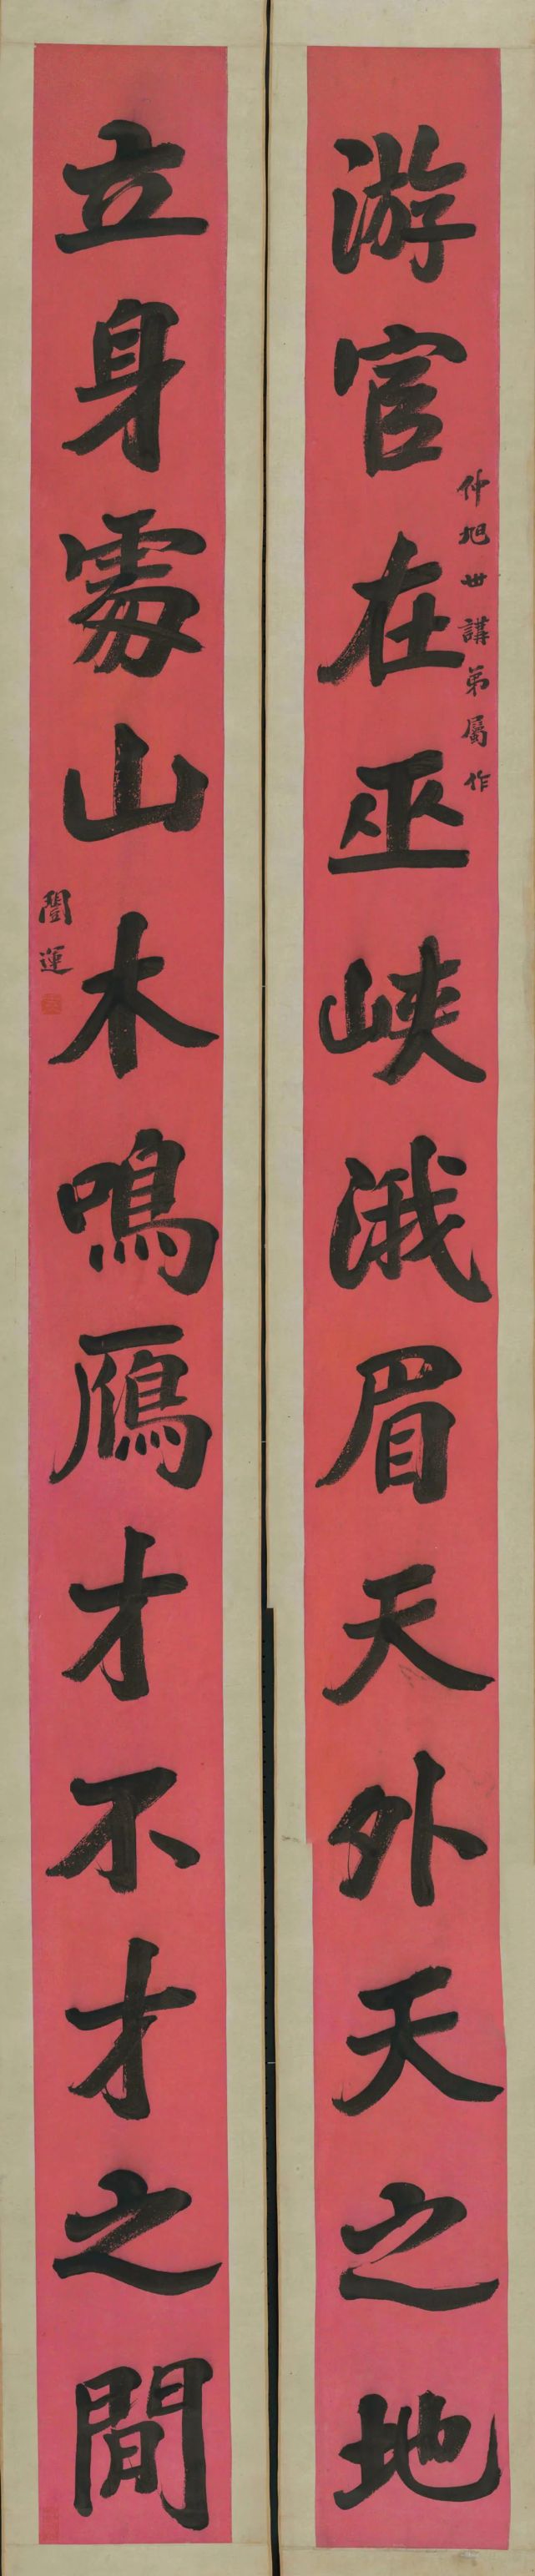 游宦在巫峽涐眉天外天之地
仲旭世講弟屬作
立身處山木鳴鴈才不才之間
闓運